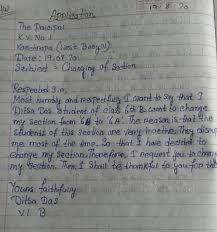 Application
17.8.20
The Principal
K.V. No. 1
Kanchrapara (West Bengal)
Date: 17.08.20
Subject = Changing of Section
Respected Sir,
Most humbly and respectfully I want to say that I
Ditsa Das student of class 6th B want to change
my section from 6B to '6A'. The reason is that the
students of this section are very They
me most of the time. So that I have decided to
change my section. Therefore, I request you to
my Section. Then I shall be thankful to you for this
Yours faithfully
Ditsa Das
VI B